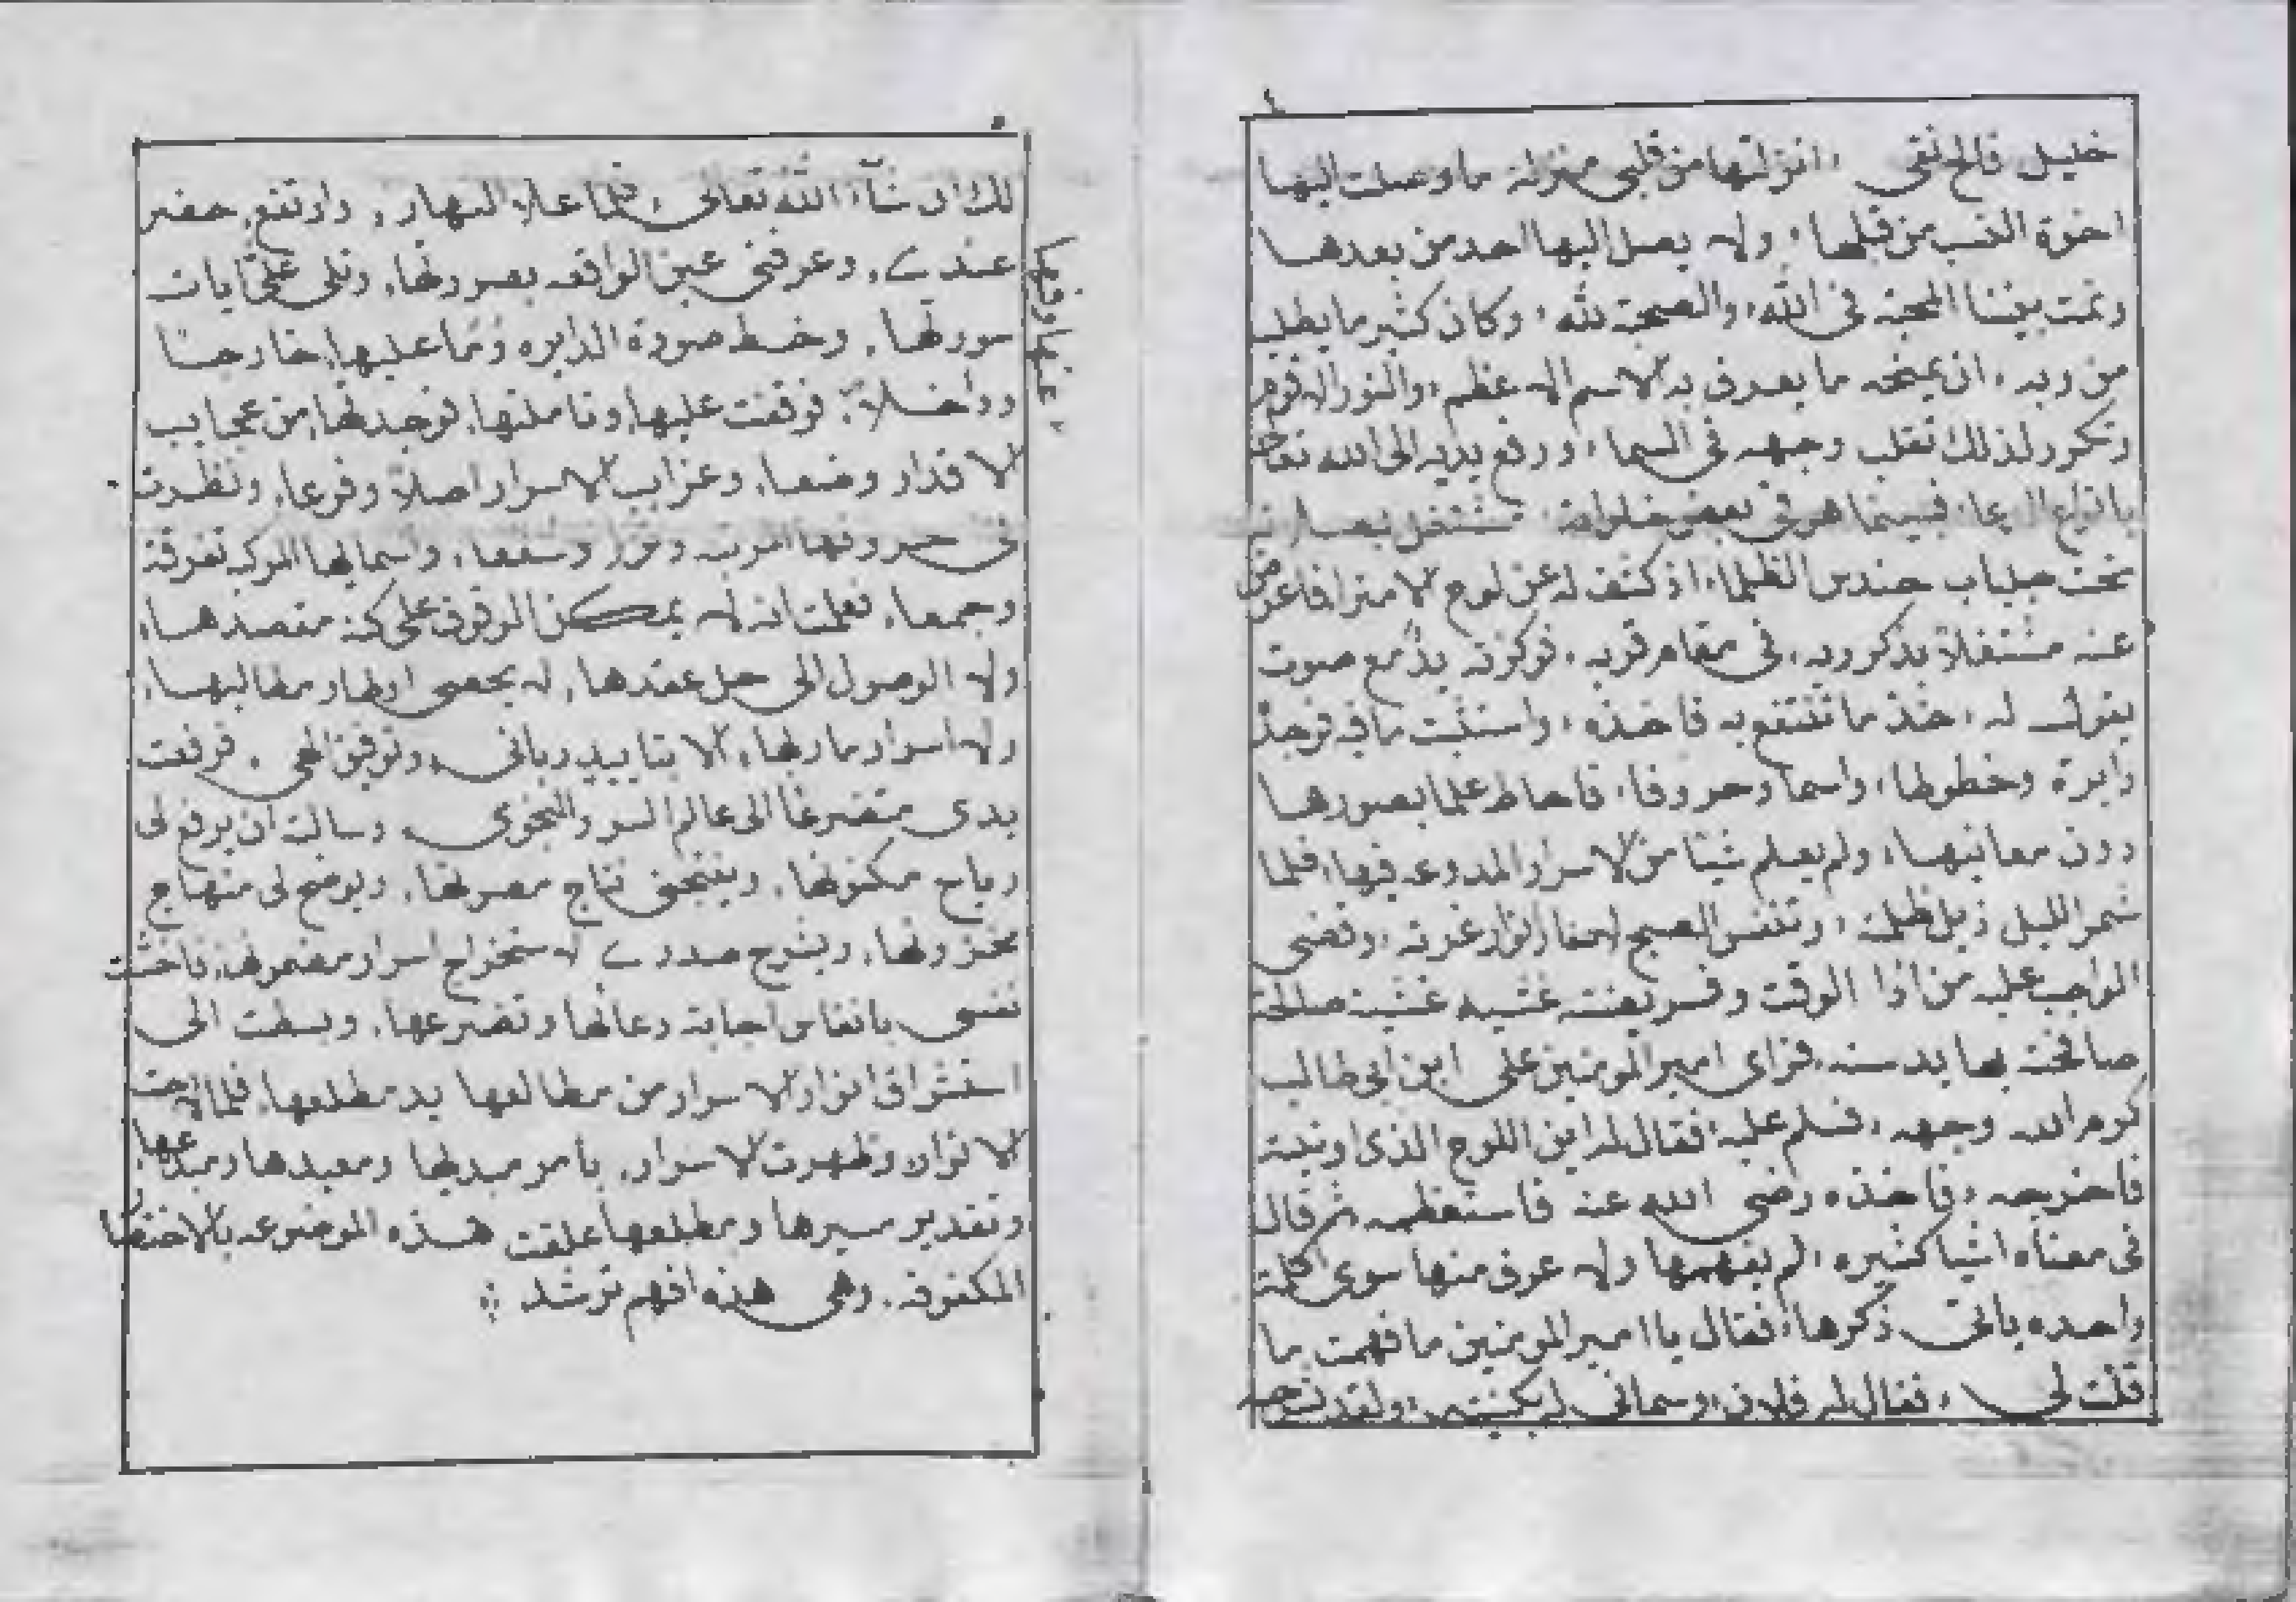 خليل صالح تقي، انزلتها من قلبي منزلة ما وصلت اليها
اخوة النسب من قبلها، ولا يصل اليها احد من بعدها
وتمت بيننا المحبة في الله، والصحبة لله، وكان كثير ما يطلب
من ربه، ان يمنحه ما يعرف به الاسم الاعظم، والنور الاقوم
وتكرر لذلك تقلب وجهه في السما، ورفع يديه الى الله تعالى
بانواع الدعا، فبينما هو في بعض خلواته
تحت جلباب حندس الظلما، اذ كشف له عن لوح فاعرض
عنه مشتغلا بذكر ربه، في مقام قربه، فوكزته يد مع صوت
يقول له، خذ ما تنتفع به فاخذه، واستثبت ما فيه فوجد
دايرة وخطوطا، واسما وحروفا، فاحاط علما بصورها
دون معانيها، ولم يعلم شيئا من الاسرار المدوعه فيها، فلما
شمر الليل ذيل ظلمته، وتنفس الصبح انوار غرته، وقضى
الواجب عليه من اذا الوقت وفر يغشه غشيه غشية صلاحة
صافحت بها يد سنه، فراى امير المومنين علي ابن ابي طالب
كرم الله وجهه، فسلم عليه، فقال له اين اللوح الذي اوتيته
فاخرجه، فاخذه رضي الله عنه فاستعظمه ثم قال
في معناه اشيا كثيره، لم يفهمها ولا عرف منها سوى كلمة
واحده ذكرها، فقال يا امير المومنين ما فهمت ما
قلت لي، فقال له فلان، وسماني له بكنيتي،
لك ان شاء الله تعالى، فلما علا النهار، وارتفع، حضر
عندي، وعرفني عين الواقعه بصورتها، وتلى علي ايات
سورتها، وخط صورة الدايره وما عليها خارجا
وداخلا، فوقفت عليها وتاملتها، فوجدتها من عجايب
الاقدار وضعا، وغرايب الاسرار اصلا وفرعا، ونظرت
في حروفها وترا وشفعا، واسمايها المركبه تفرقة
وجمعا، فعلمت انه لا يمكن الوقوف على كنه مقصدها،
ولا الوصول الى حل عقدها، مطالبها،
ولا اسرار ماربها، الا بتاييد رباني، وتوفيق الهي، فرفعت
يدي متضرعا الى عالم السر والنجوى، وسالته ان يرفع لي
رتاج مكنونها، ويمنحني تتاج مصونها، ويوضح لي منهاج
مخزونها، ويشرح صدري لاستخراج اسرار مضمونها،
نفسي بانفاس اجابة دعائها وتضرعها، وبسطت الى
استشراق انوار الاسرار من مطالعها يد مطلعها، فلما لاحت
الانوار، وظهرت الاسرار، بامر مبديها ومعيدها ومبدعها،
وتقدير سيرها ومطلعها علقت هذه الموضوعه بالاختصار
المكنوفه، وهي هذه افهم ترشد